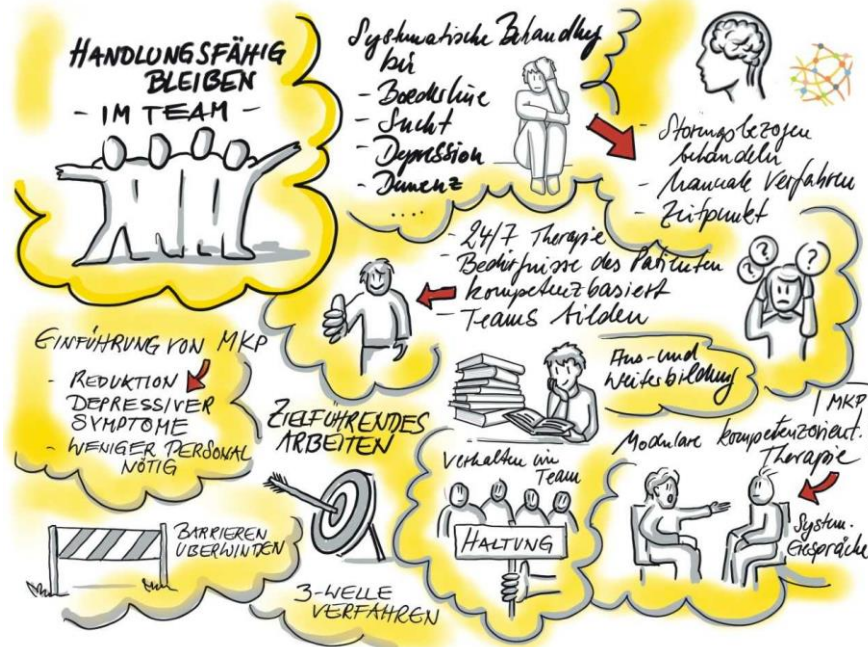 HANDLUNGSFÄHIG
BLEIBEN
- IM TEAM -
Systematische Behandlung
bei
- Borderline
- Sucht
- Depression
- Demenz
....
- Störungsbezogen
behandeln
- Manuale Verfahren
- Zeitpunkt
- 24/7 Therapie
- Bedürfnisse des Patienten
- kompetenzbasiert
- Teams bilden
? ? ?
EINFÜHRUNG VON MKP
- REDUKTION
DEPRESSIVER
SYMPTOME
- WENIGER PERSONAL
NÖTIG
ZIELFÜHRENDES
ARBEITEN
Aus- und
Weiterbildung
BARRIEREN
ÜBERWINDEN
3-WELLE
VERFAHREN
Verhalten im
Team
HALTUNG
MKP
Modulare kompetenzorient.
Therapie
System.
Gespräche